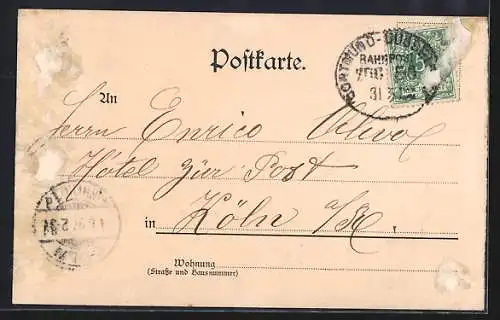 Postkarte.
DORTMUND-
BAHNPOST
ZUG
31
An
Herrn Enrico
Hôtel zur Post
in Köln a/R.
Wohnung
(Straße und Hausnummer)